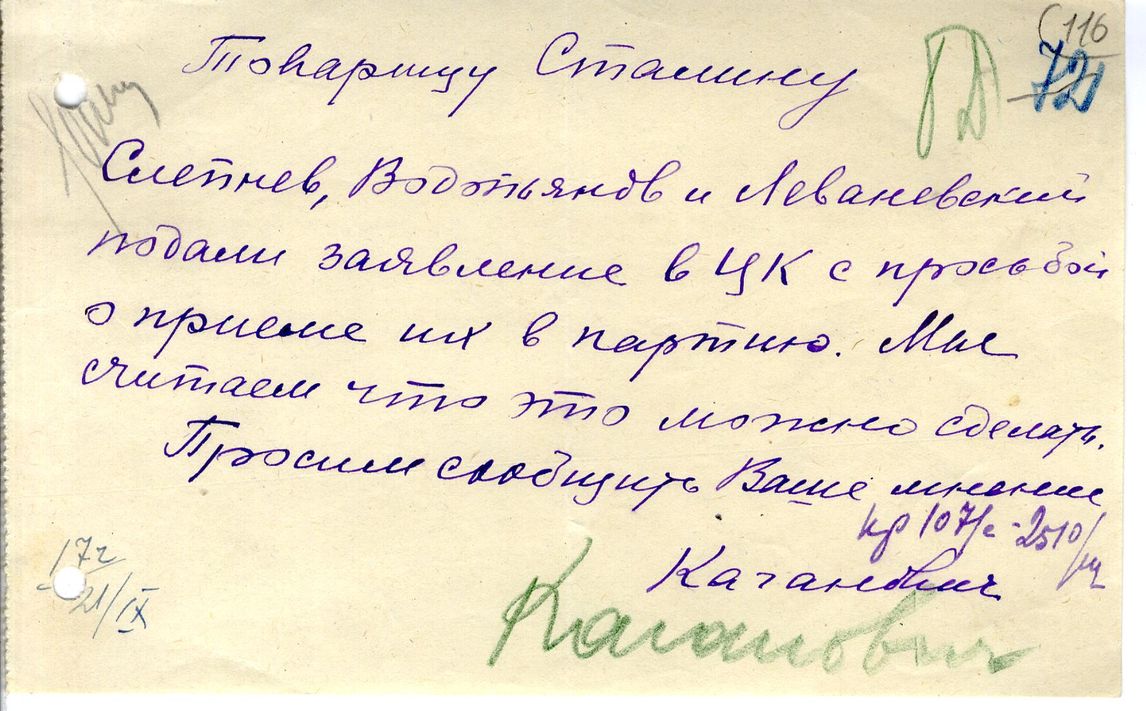 116
72
Товарищу Сталину
Слепнев, Водопьянов и Леваневский
подали заявление в ЦК с просьбой
о приеме их в партию. Мы
считаем что это можно сделать.
Просим сообщить Ваше мнение
Каганович
17ч
21/IX
Каганович